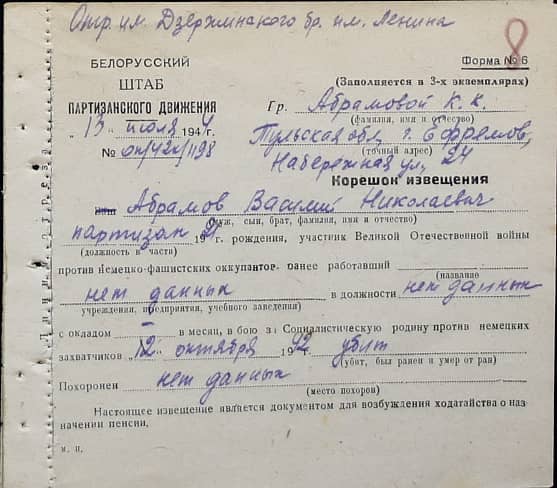 Отр. им. Дзержинского бр. им. Ленина
8
БЕЛОРУССКИЙ
ШТАБ
ПАРТИЗАНСКОГО ДВИЖЕНИЯ
„13 июля 1944г.
№ оп/42к/1198
Форма № 6
(Заполняется в 3-х экземплярах)
Гр. Абрамовой К. К.
(фамилия, имя и отчество)
Тульская обл. г. Ефремов,
(точный адрес)
Набережная ул, 24
Корешок извещения
Абрамов Василий Николаевич
(муж, сын, брат, фамилия, имя и отчество)
партизан 19 г. рождения, участник Великой Отечественной войны
(должность в части)
против немецко-фашистских оккупантов ранее работавший
(название
нет данных в должности нет данных
учреждения, предприятия, учебного заведения)
с окладом – в месяц, в бою за Социалистическую родину против немецких
захватчиков „12 октября 1942 убит
(убит, был ранен и умер от ран)
Похоронен нет данных
(место похорон)
Настоящее извещение является документом для возбуждения ходатайства о наз-
начении пенсии.
М. П.